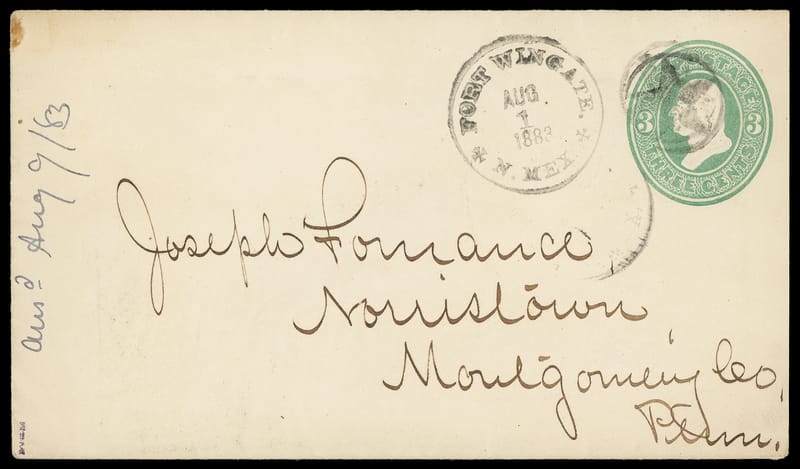 FORT WINGATE.
AUG
1
1883
N. MEX.
U.S. POSTAGE
3 3
THREE CENTS
Joseph Fornance
Norristown
Montgomery Co,
Penn.
ans'd Aug 9/83